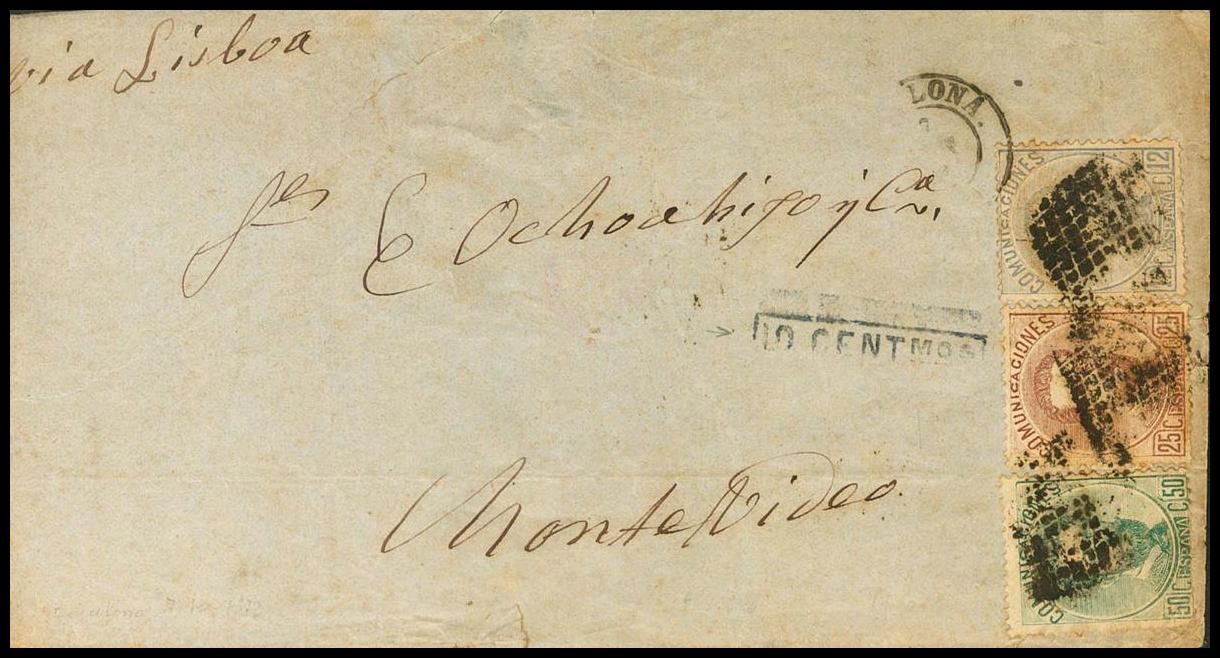 via Lisboa
LONA.
Sres E Ochoa hijo y Ca.
10 CENTMOS
Montevideo
COMUNICACIONES
12
C. ESPAÑA C.
12
COMUNICACIONES
25
C. ESPAÑA
25
50 C. ESPAÑA C. 50